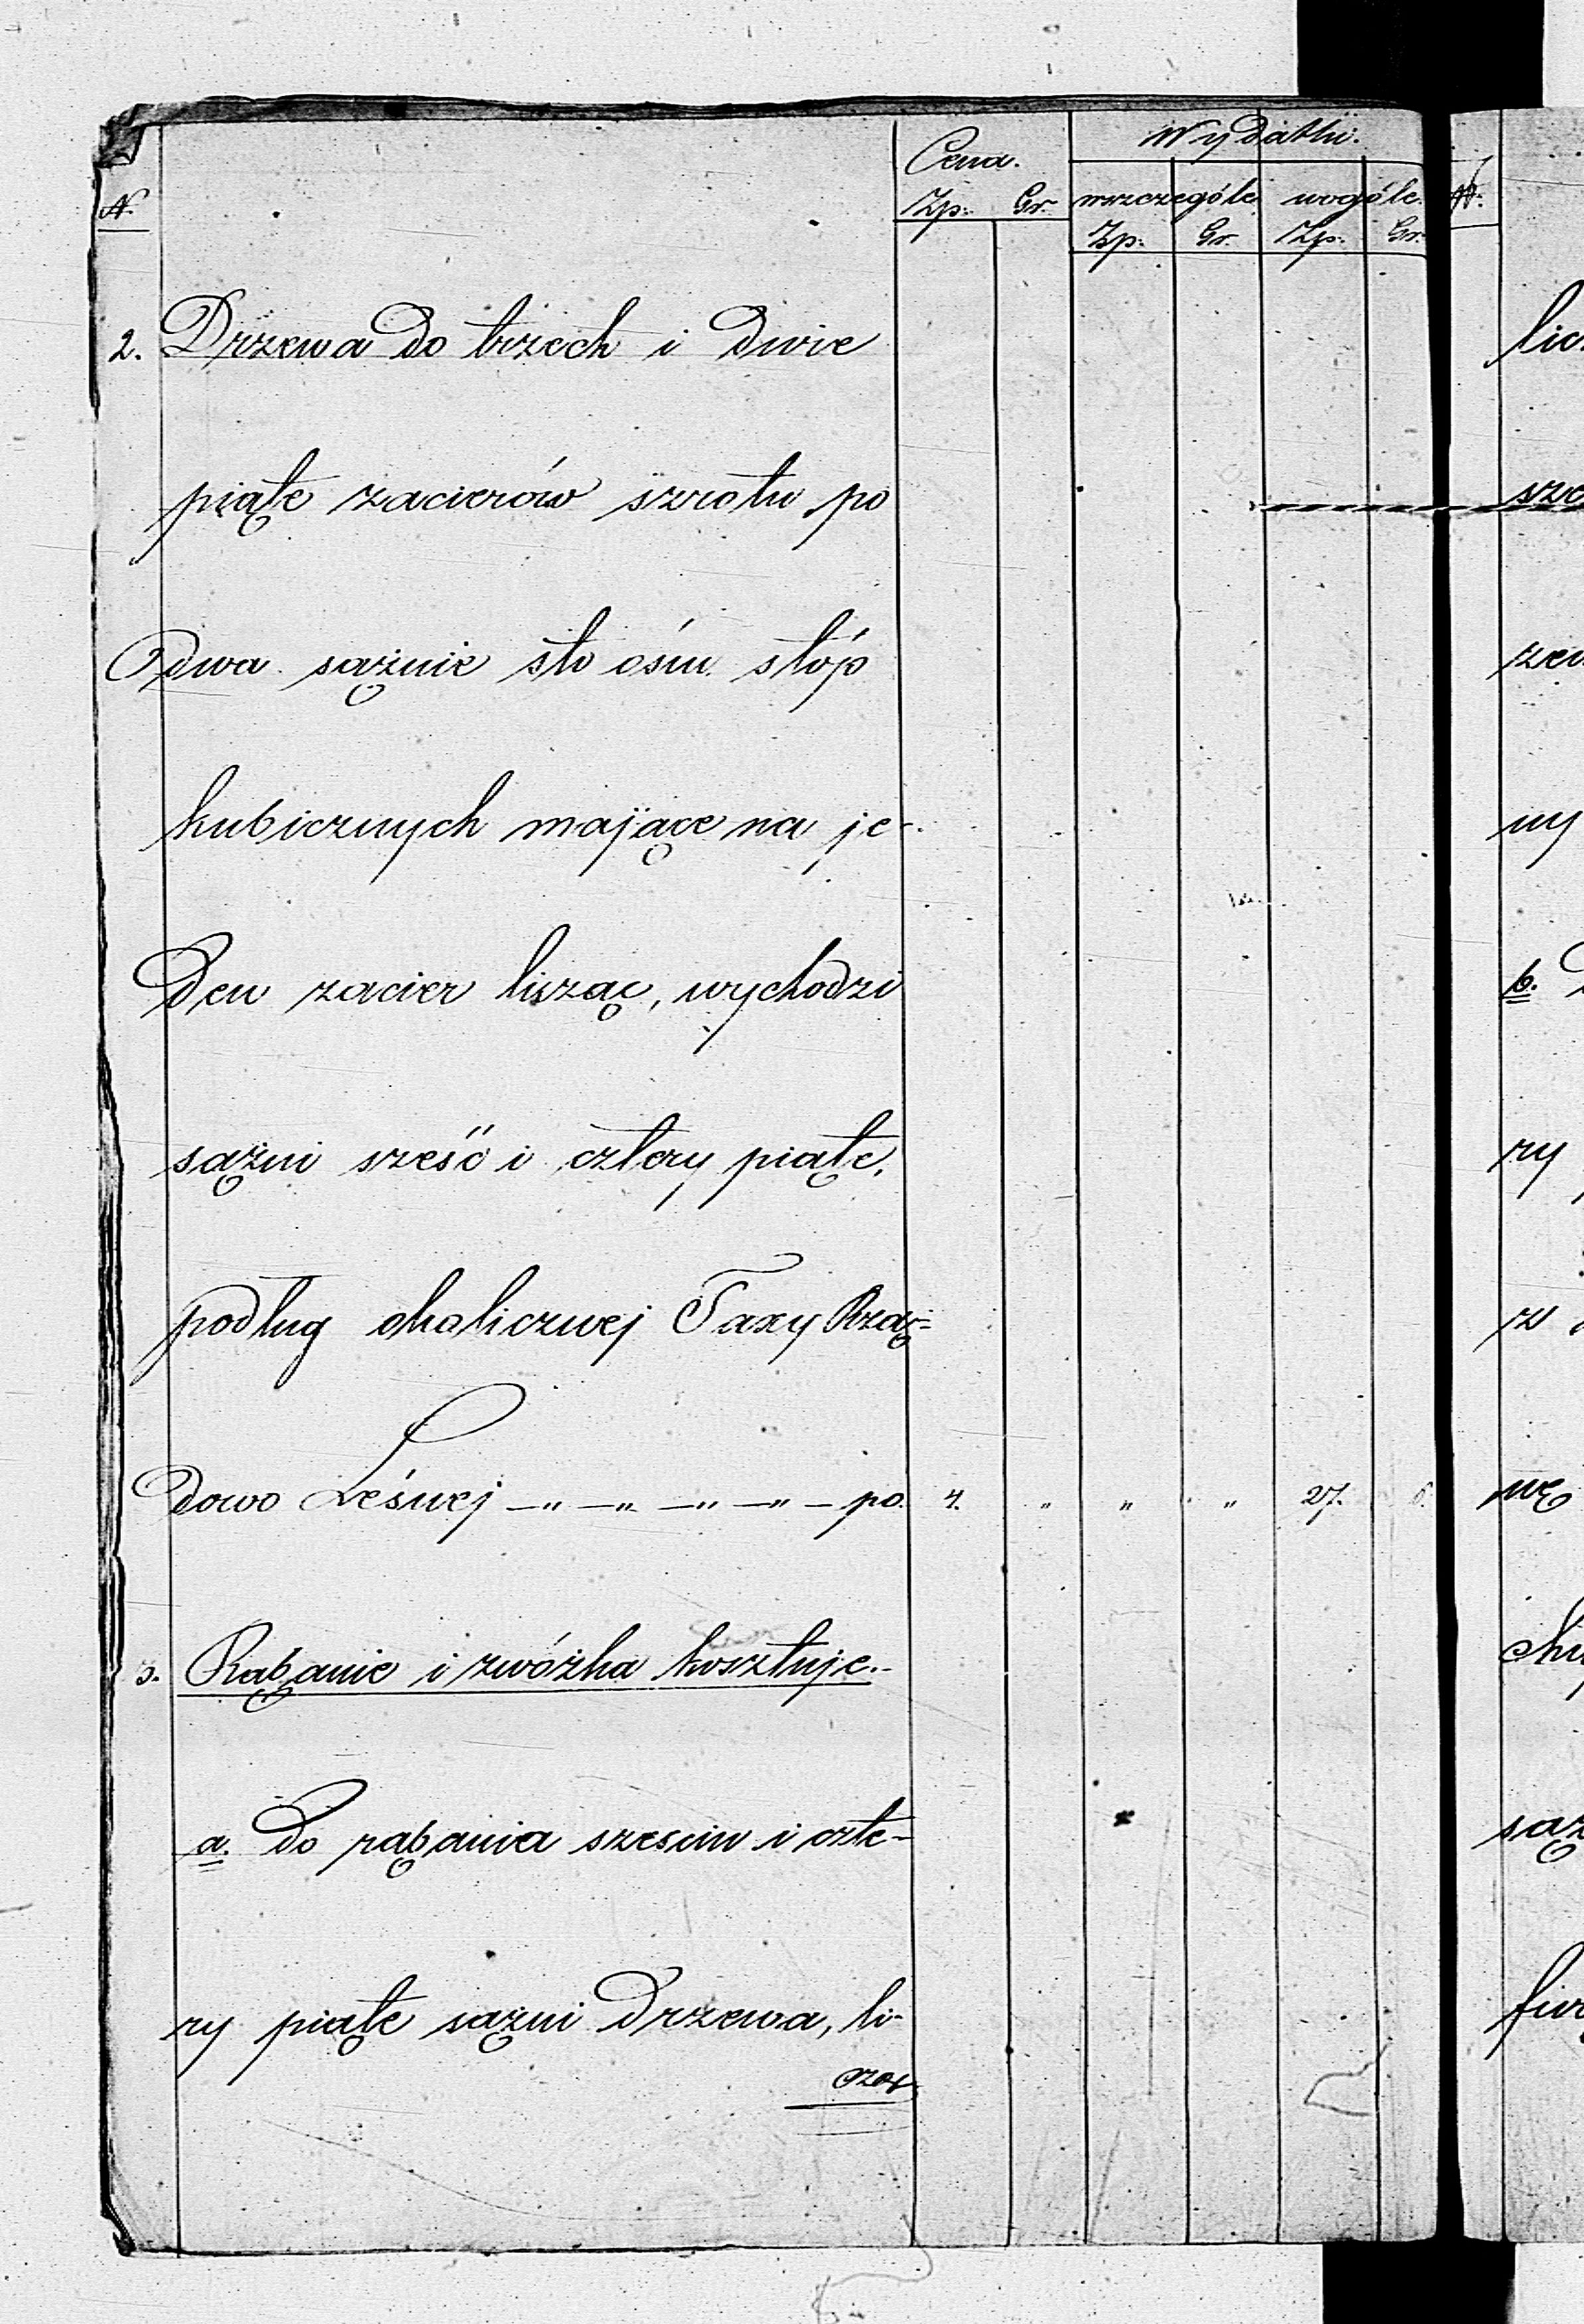 Wydatki.
Cena.
N. Zp: Gr. wszczególe wogóle. N:
Zp: Gr. Zp: Gr.
2. Drzewa do trzech i dwie
piąte zacierów szrotu po
dwa sążnie sto ośm stóp
kubicznych mające na je-
den zacier licząc, wychodzi
sążni sześć i cztery piąte,
podług okolicznej Taxy Rzą=
dowo Leśnej —„ —„ —„ —„ — po. 4. „ „ „ 27. 6.
3. Rąbanie i zwózka kosztuje.
a. Do rąbania sześciu i czte-
ry piąte sążni drzewa, li-
cząc
ny
b.
ry